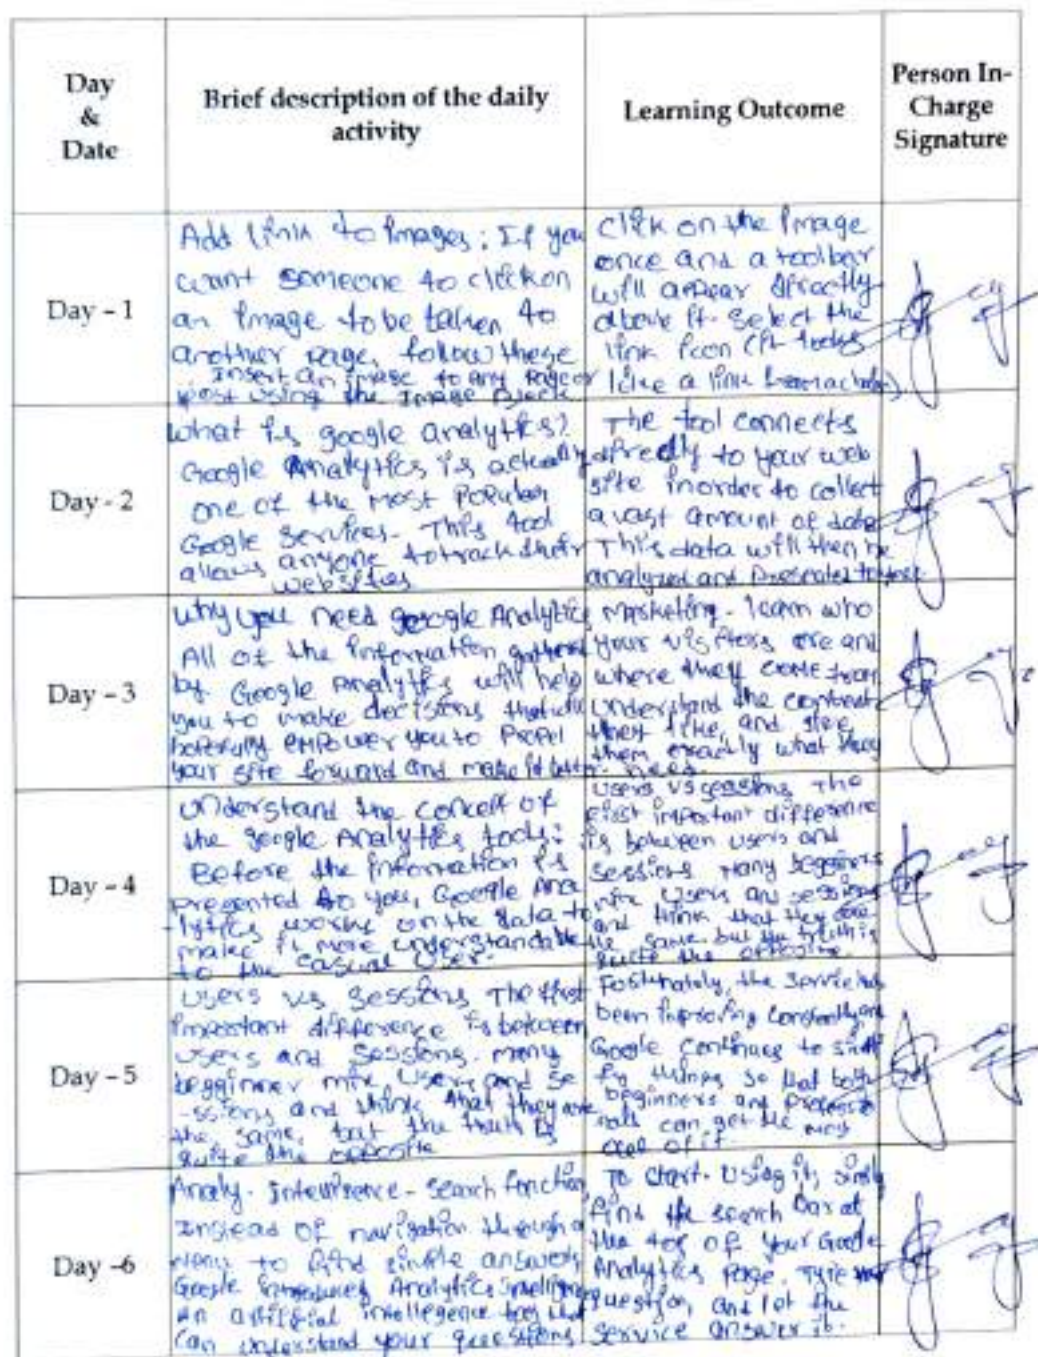 Day
&
Date
Brief description of the daily
activity
Learning Outcome
Person In-
Charge
Signature
Day - 1
Add link to images: If you
want someone to click on
an image to be taken to
another page, follow these
Insert an image to any page or
post using the Image Block
Click on the image
once and a toolbar
will appear directly
above it. Select the
link icon (it looks
like a link
Day - 2
What is google analytics?
Google Analytics is actually
one of the most Popular
Google Services. This tool
allows anyone to track their
websites
The tool connects
directly to your web
site inorder to collect
a vast amount of data
This data will then be
analyzed and Presented to
Day - 3
Why you need google Analytics
All of the information gathered
by Google Analytics will help
you to make decisions that
hopefully empower you to Propel
your site forward and make it better
Marketing. learn who
your visitors are and
where they come from
understand the content
they like, and give
them exactly what they
need.
Day - 4
Understand the concept of
the google Analytics tools:
Before the information is
presented to you, Google Ana
-lytics works on the data to
make it more understandable
to the casual user.
Users vs sessions The
First important difference
is between users and
sessions many begginers
mix users and sessions
and think that they are
the same but the truth is
quite the opposite.
Day - 5
Users vs sessions The first
important difference is between
users and sessions. many
begginner mix users and se
-ssions and think that they are
the same, but the truth is
quite the opposite
Fortunately, the service has
been improving constantly, and
Google continues to
things so that both
beginners and
can get the most
out of it.
Day -6
Analy. Intelligence - Search function
Instead of navigation through a
menu to find simple answers
Google introduced Analytics intelligence
an artificial intellegence that
can understand your questions
To start using it, simply
find the search bar at
the top of your Google
Analytics page. Type
question, and let the
service answer it.